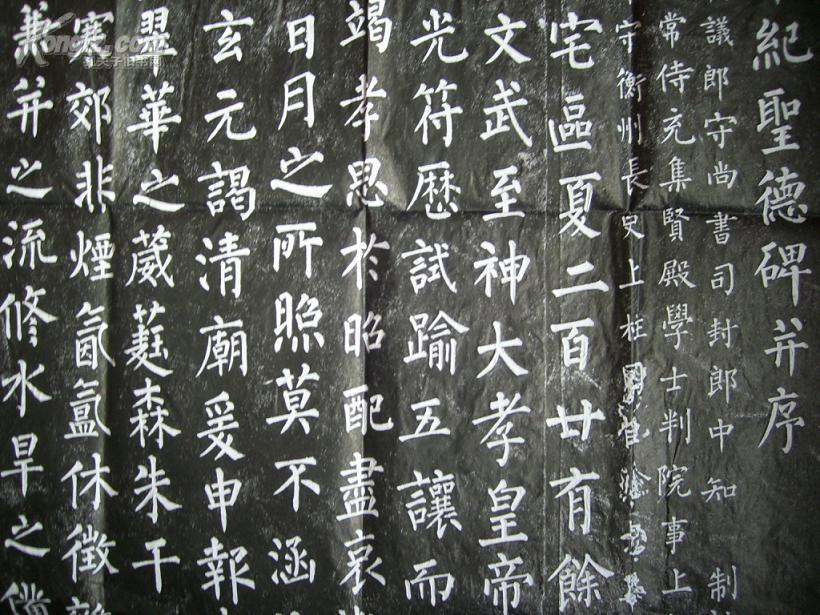 紀聖德碑并序
議郎守尚書司封郎中知 制
常侍充集賢殿學士判院事上
守衡州長史上柱國
宅區夏二百廿有餘
文武至神大孝皇帝
光符歷試踰五讓而
竭孝思於昭配盡哀
日月之所照莫不涵
玄元謁清廟爰申報
翠華之葳蕤森朱干
寒郊非煙氤氳休徵
兼并之流修水旱之